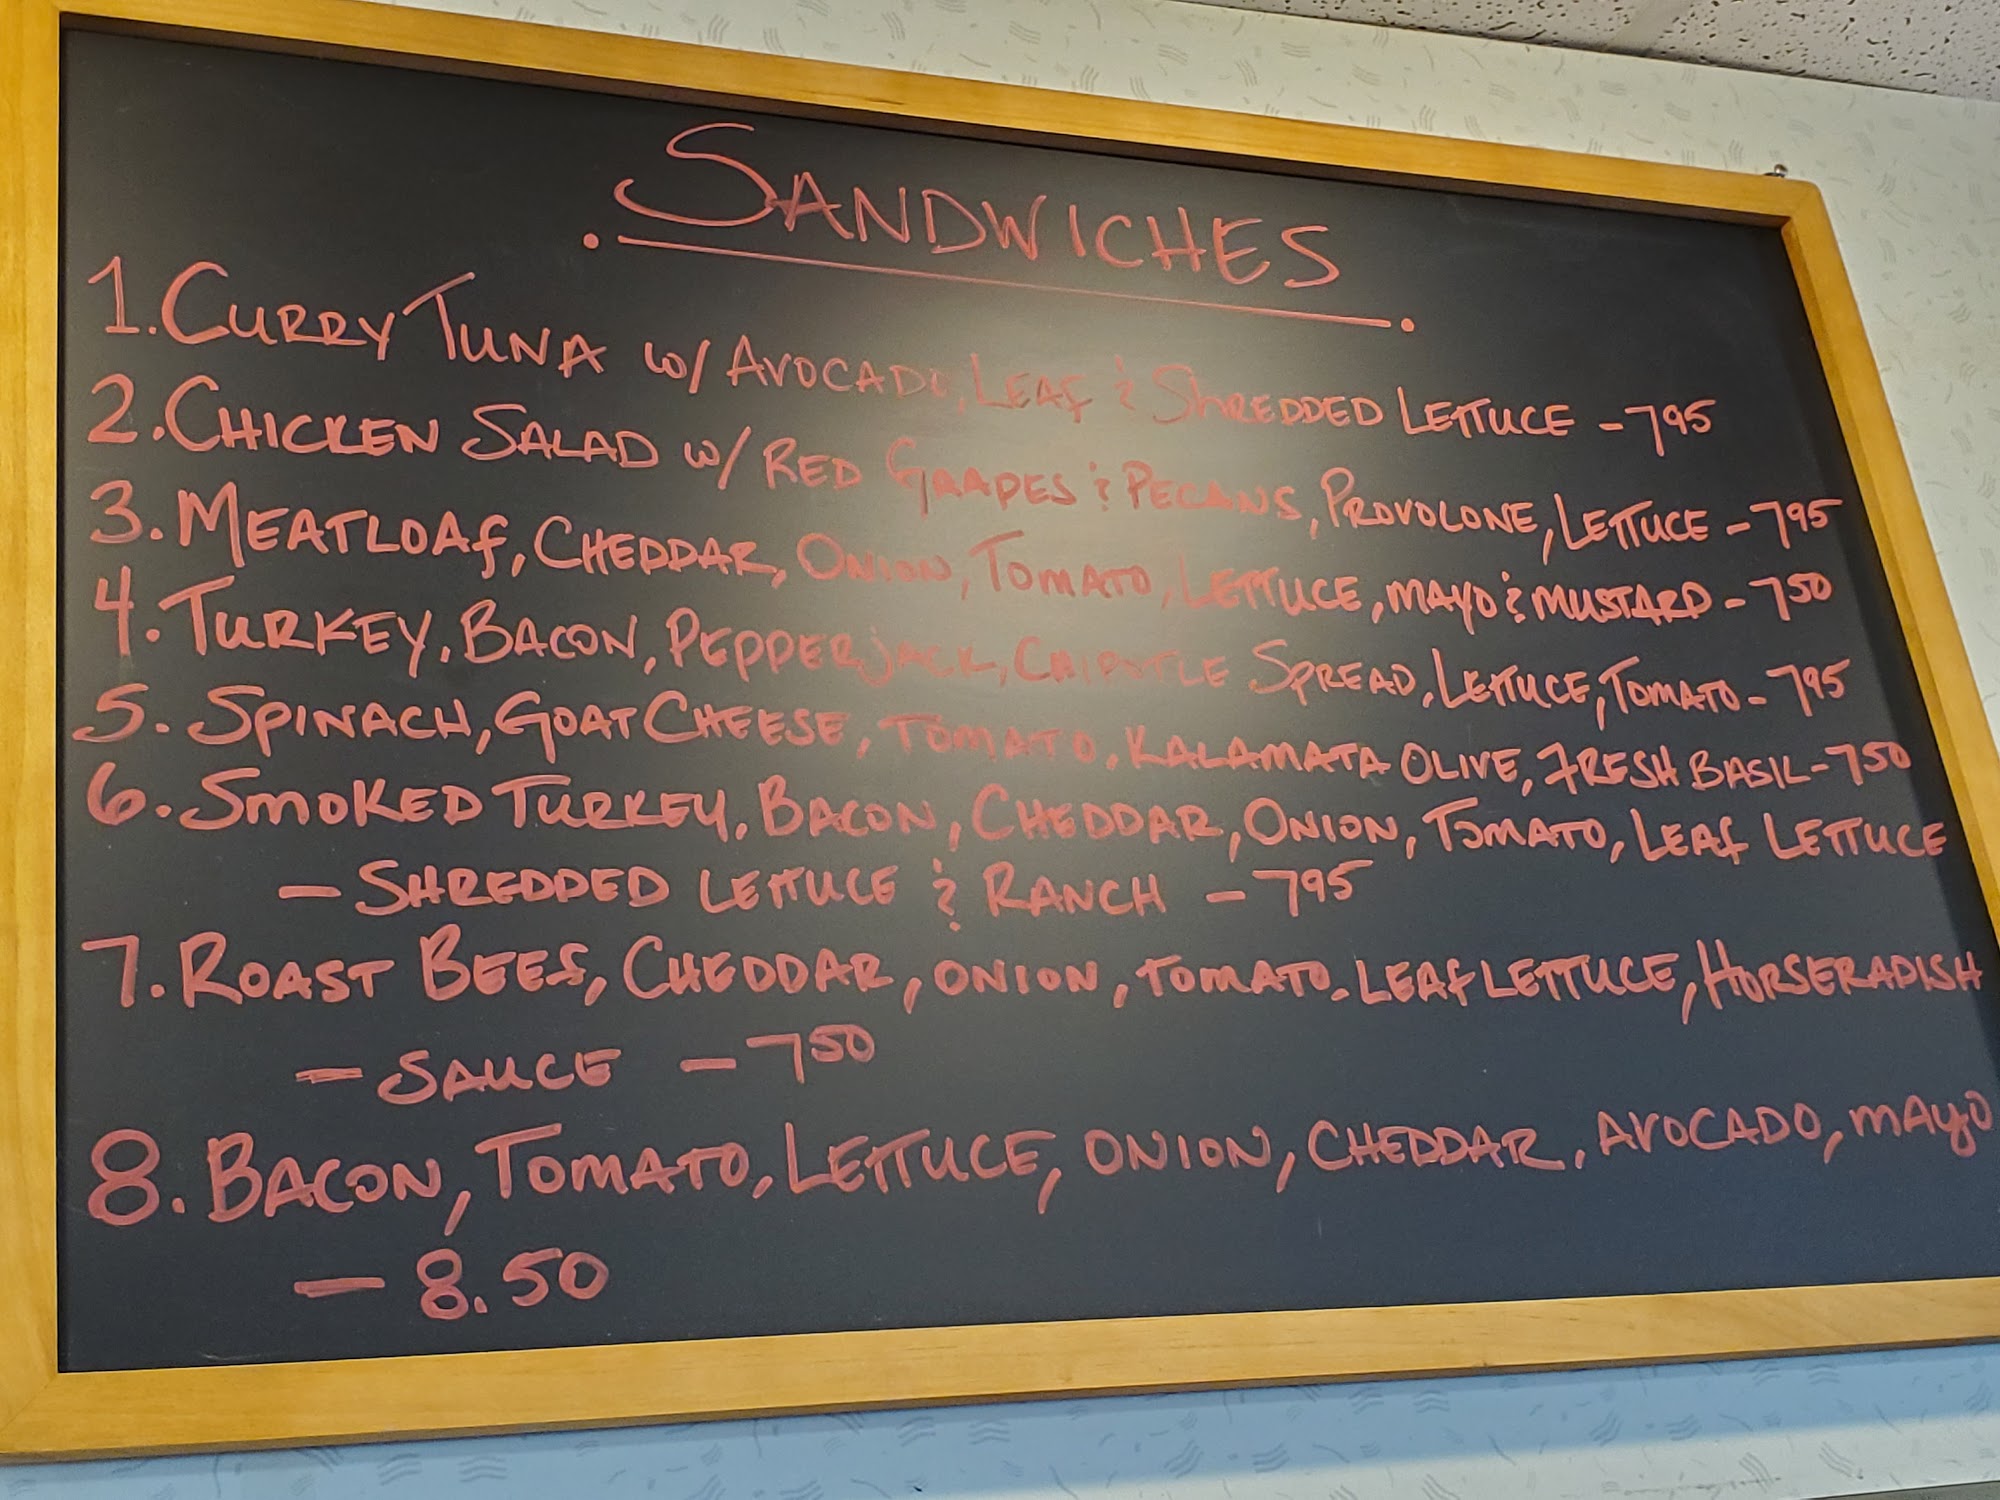 SANDWICHES
1. CURRY TUNA w/ AVOCADO, LEAF & SHREDDED LETTUCE - 795
2. CHICKEN SALAD w/ RED GRAPES & PECANS, PROVOLONE, LETTUCE - 795
3. MEATLOAF, CHEDDAR, ONION, TOMATO, LETTUCE, MAYO & MUSTARD - 750
4. TURKEY, BACON, PEPPERJACK, CHIPOTLE SPREAD, LETTUCE, TOMATO - 795
5. SPINACH, GOAT CHEESE, TOMATO, KALAMATA OLIVE, FRESH BASIL - 750
6. SMOKED TURKEY, BACON, CHEDDAR, ONION, TOMATO, LEAF LETTUCE
- SHREDDED LETTUCE & RANCH - 795
7. ROAST BEEF, CHEDDAR, ONION, TOMATO, LEAF LETTUCE, HORSERADISH
- SAUCE - 750
8. BACON, TOMATO, LETTUCE, ONION, CHEDDAR, AVOCADO, MAYO
- 8.50